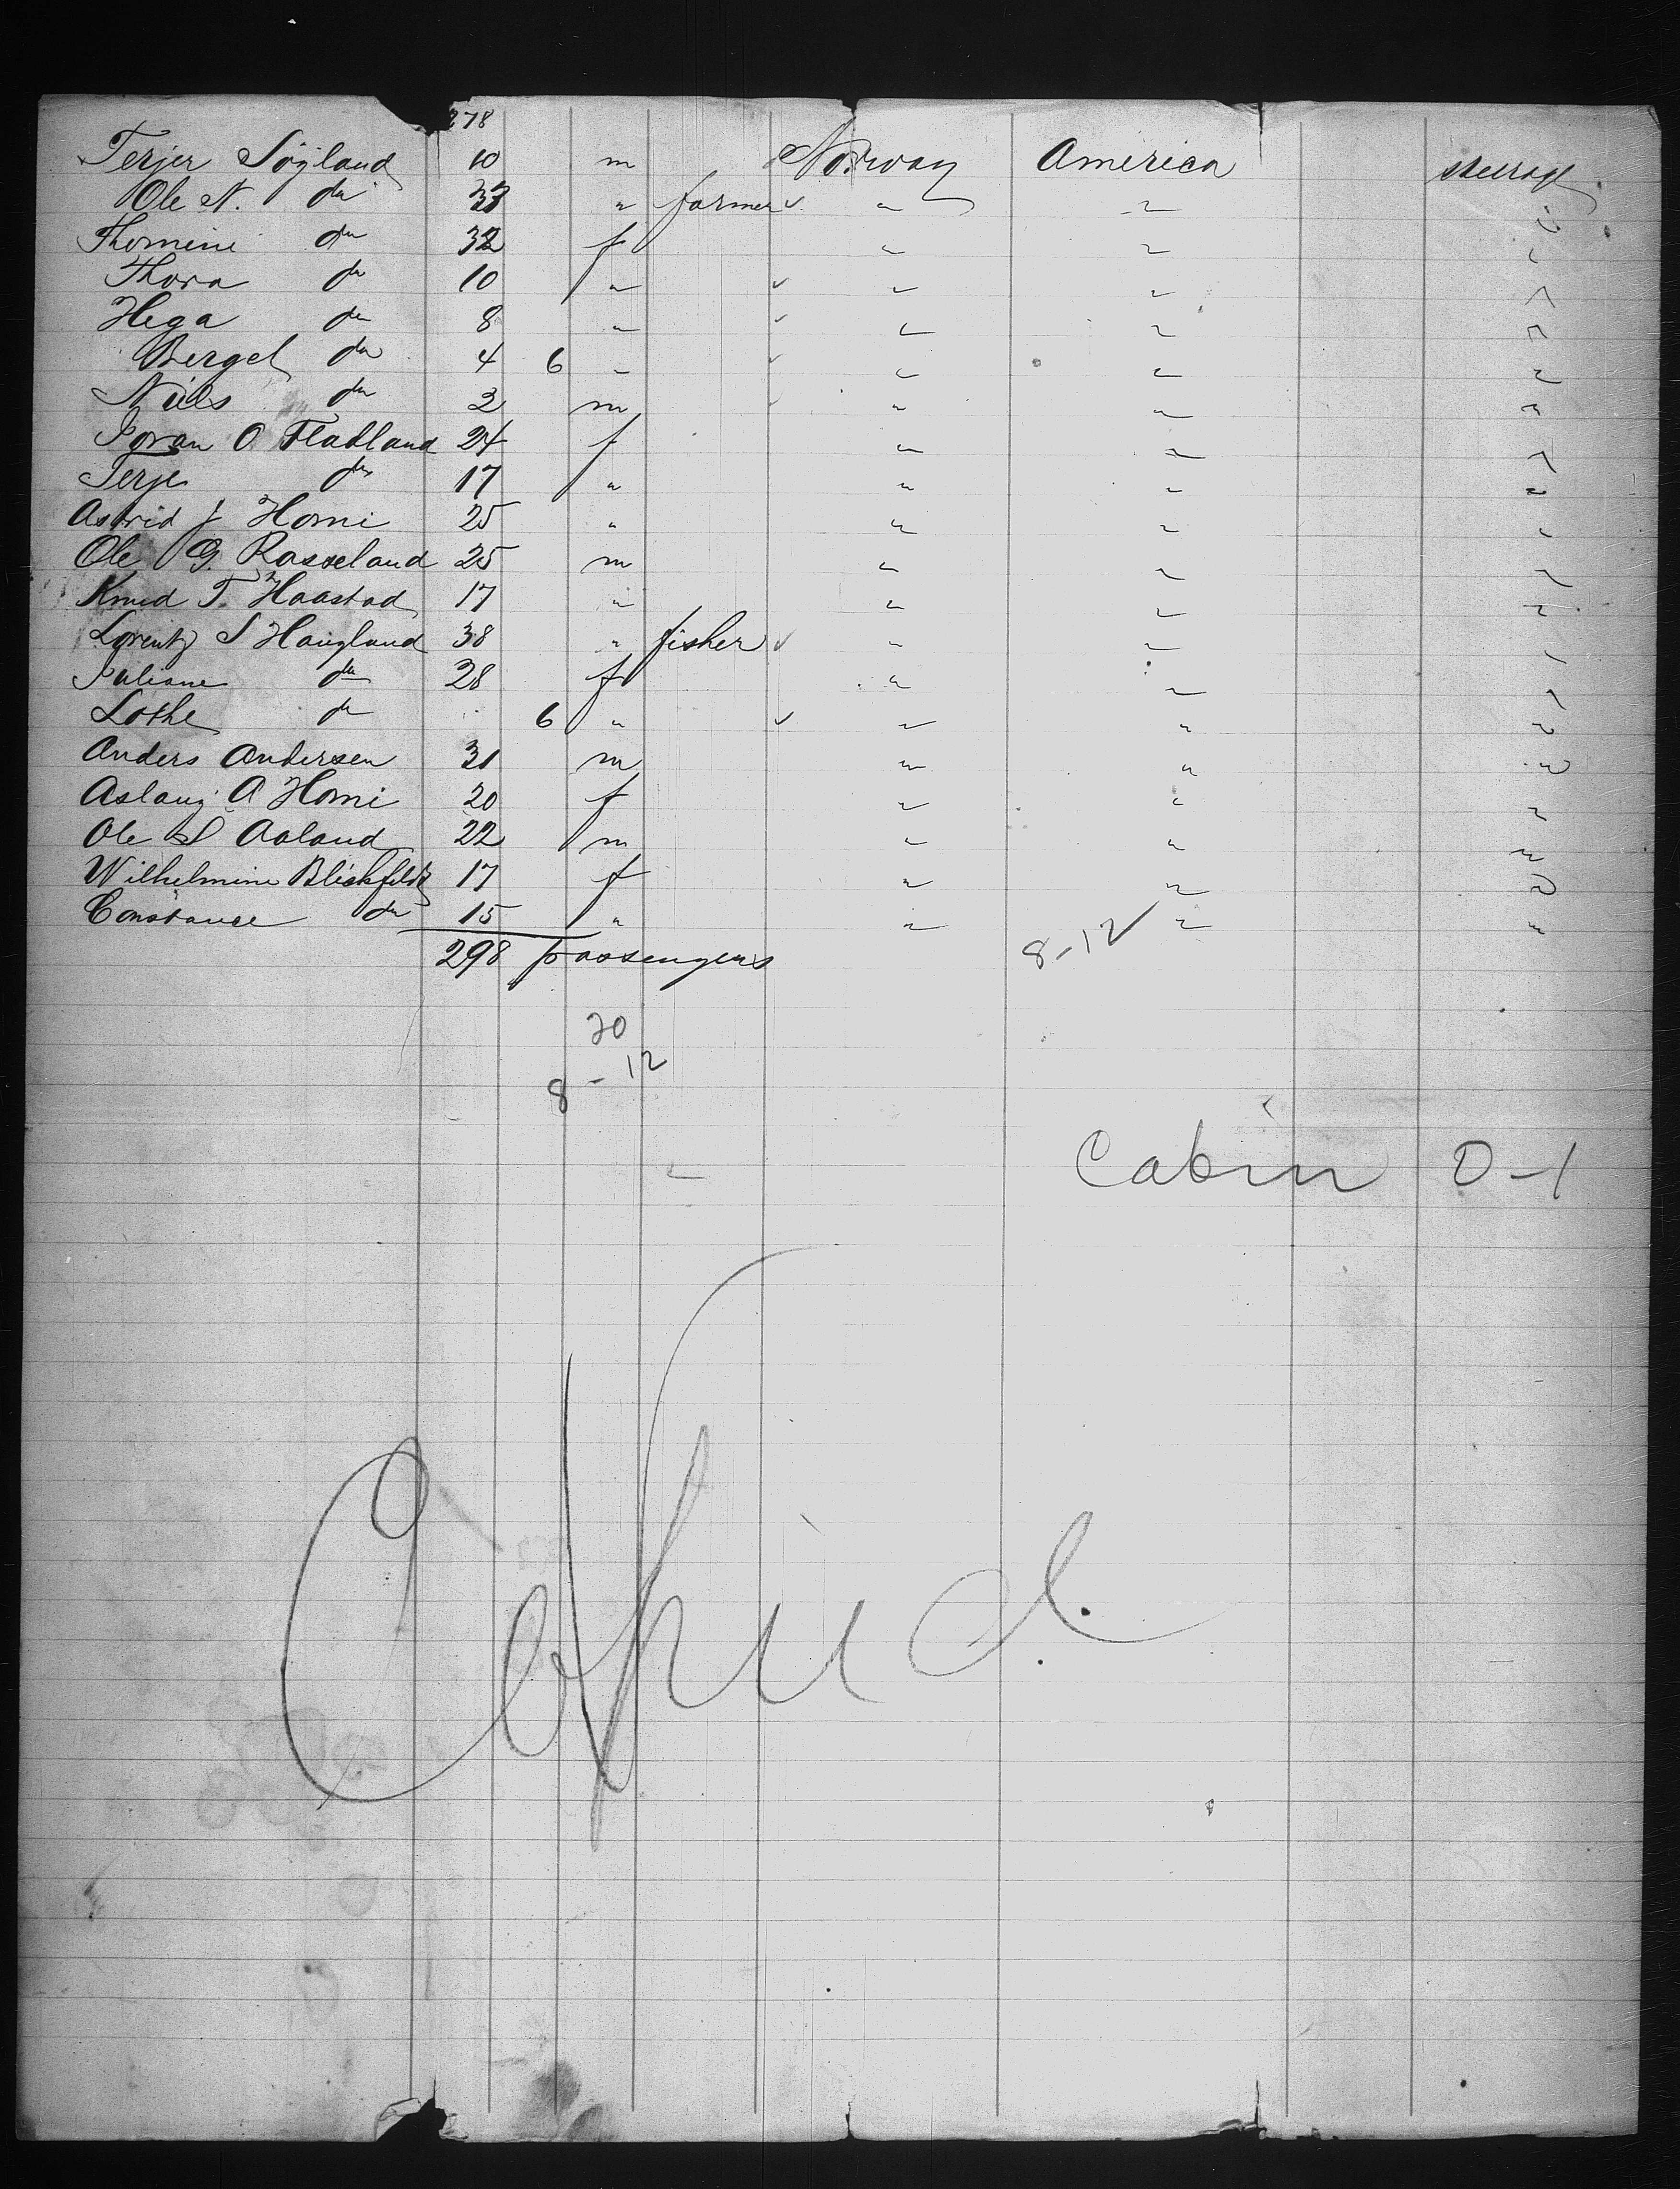 278
Terjer Söyland 10 m Norway America steerage
Ole N. do 33 " farmer " " "
Thomine do 32 f " " "
Thora do 10 " " " "
Hega do 8 " " " "
Bergel do 4 6 " " " "
Niels do 2 m " " "
Joran O. Fladland 24 f " " "
Terje do 17 " " " "
Astrid J Homi 25 " " " "
Ole G. Rosseland 25 m " " "
Knud T. Haastad 17 " " " "
Lorentz S Haugland 38 " fisher " " "
Juliane do 28 f " " "
Lothe do 6 " " " "
Anders Andersen 31 m " " "
Aslaug A Homi 20 f " " "
Ole S Aaland 22 m " " "
Wilhelmine Blickfeldt 17 f " " "
Constance do 15 " " " "
298 passengers 8-12
20
8-12
Cabin 0-1